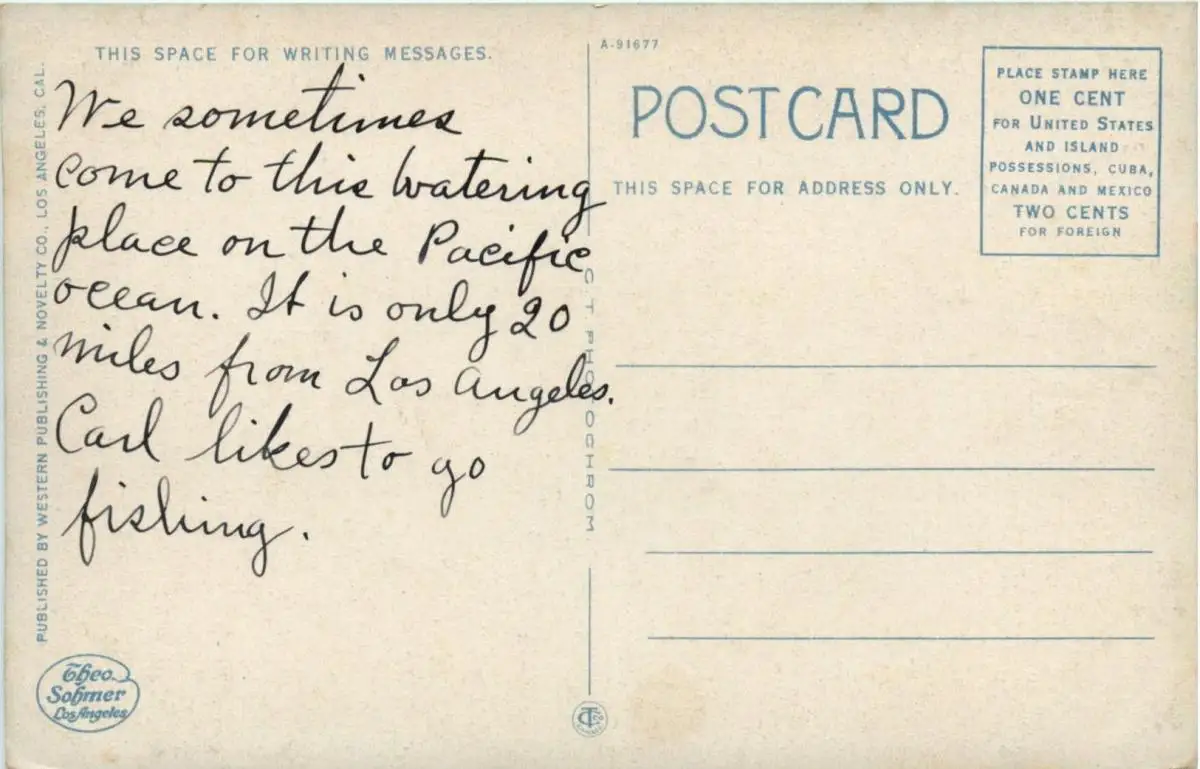 THIS SPACE FOR WRITING MESSAGES.
We sometimes
come to this watering
place on the Pacific
ocean. It is only 20
miles from Los Angeles.
Carl likes to go
fishing.
PUBLISHED BY WESTERN PUBLISHING & NOVELTY CO., LOS ANGELES, CAL.
Theo.
Sohmer
Los Angeles
C T PHOTOCHROM
CT
A-91677
POST CARD
THIS SPACE FOR ADDRESS ONLY.
PLACE STAMP HERE
ONE CENT
FOR UNITED STATES
AND ISLAND
POSSESSIONS, CUBA,
CANADA AND MEXICO
TWO CENTS
FOR FOREIGN